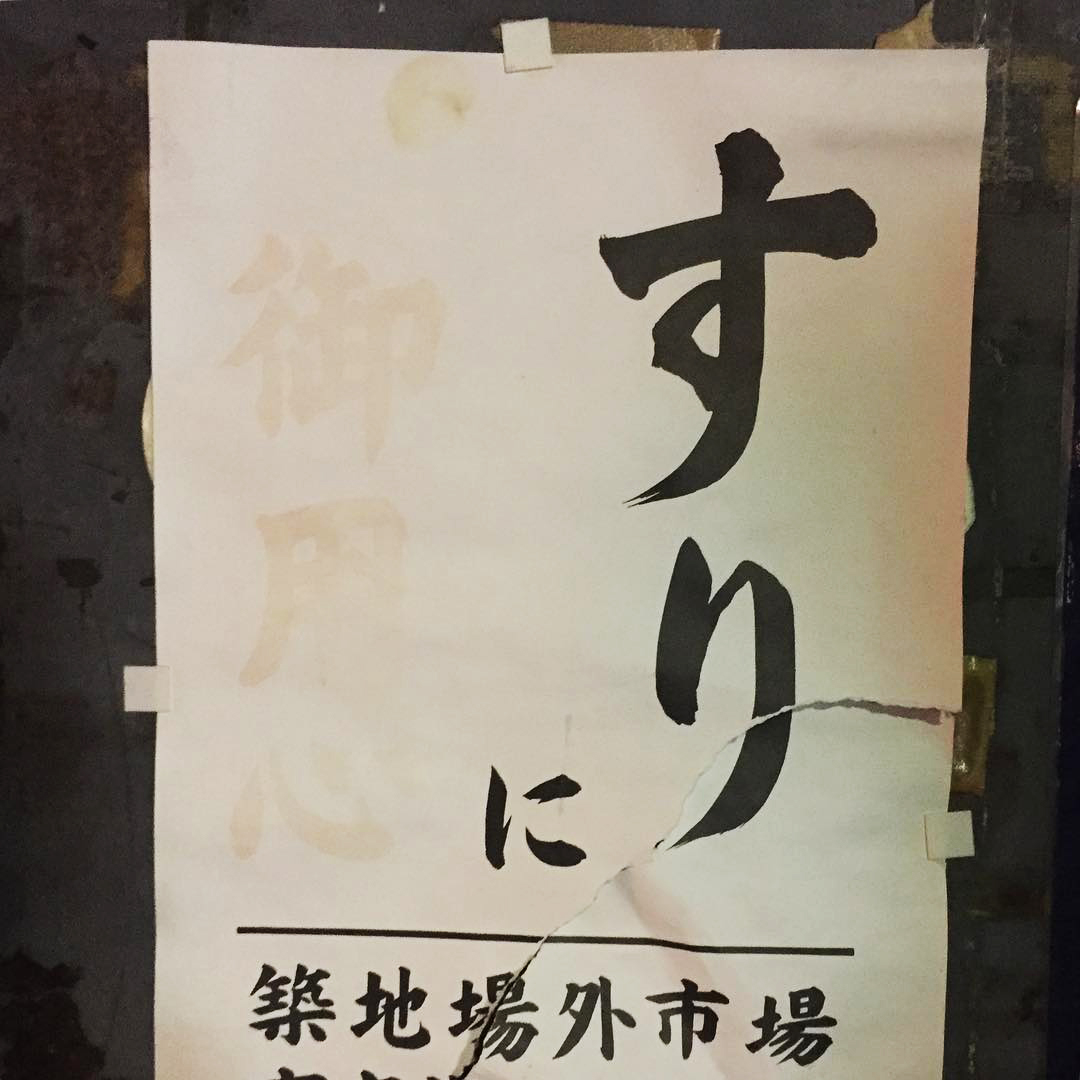 すり
に
御用心
築地場外市場